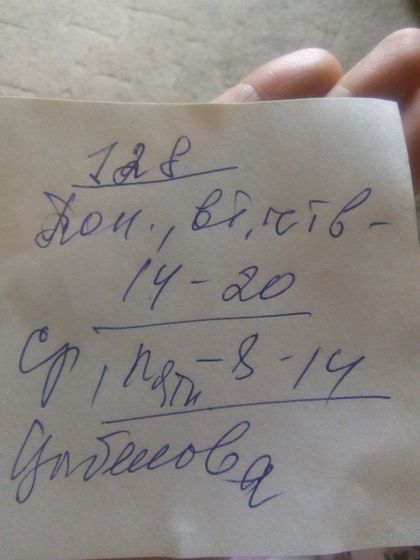 128
Пон., вт, чтв -
14 - 20
Ср, пятн - 8 - 14